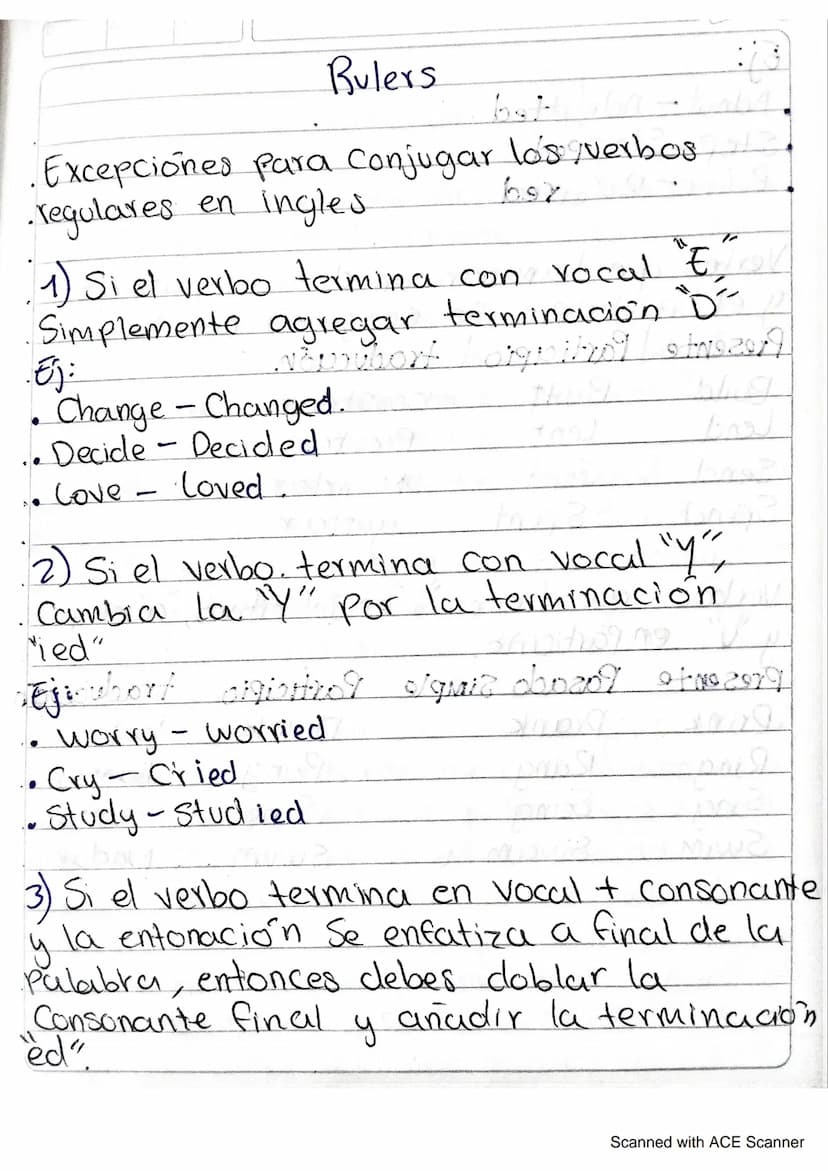 Rulers
Excepciones para conjugar los verbos
regulares en ingles
1) Si el verbo termina con vocal "E",
Simplemente agregar terminación "D"
Ej:
• Change – Changed.
• Decide – Decided
• Love – Loved.
2) Si el verbo. termina con vocal "Y",
Cambia la "Y" por la terminación
"ied"
Ej:
• Worry – Worried
• Cry – Cried
• Study – Studied
3) Si el verbo termina en vocal + consonante
y la entonación se enfatiza a final de la
palabra, entonces debes doblar la
Consonante final y añadir la terminación
"ed".
Scanned with ACE Scanner